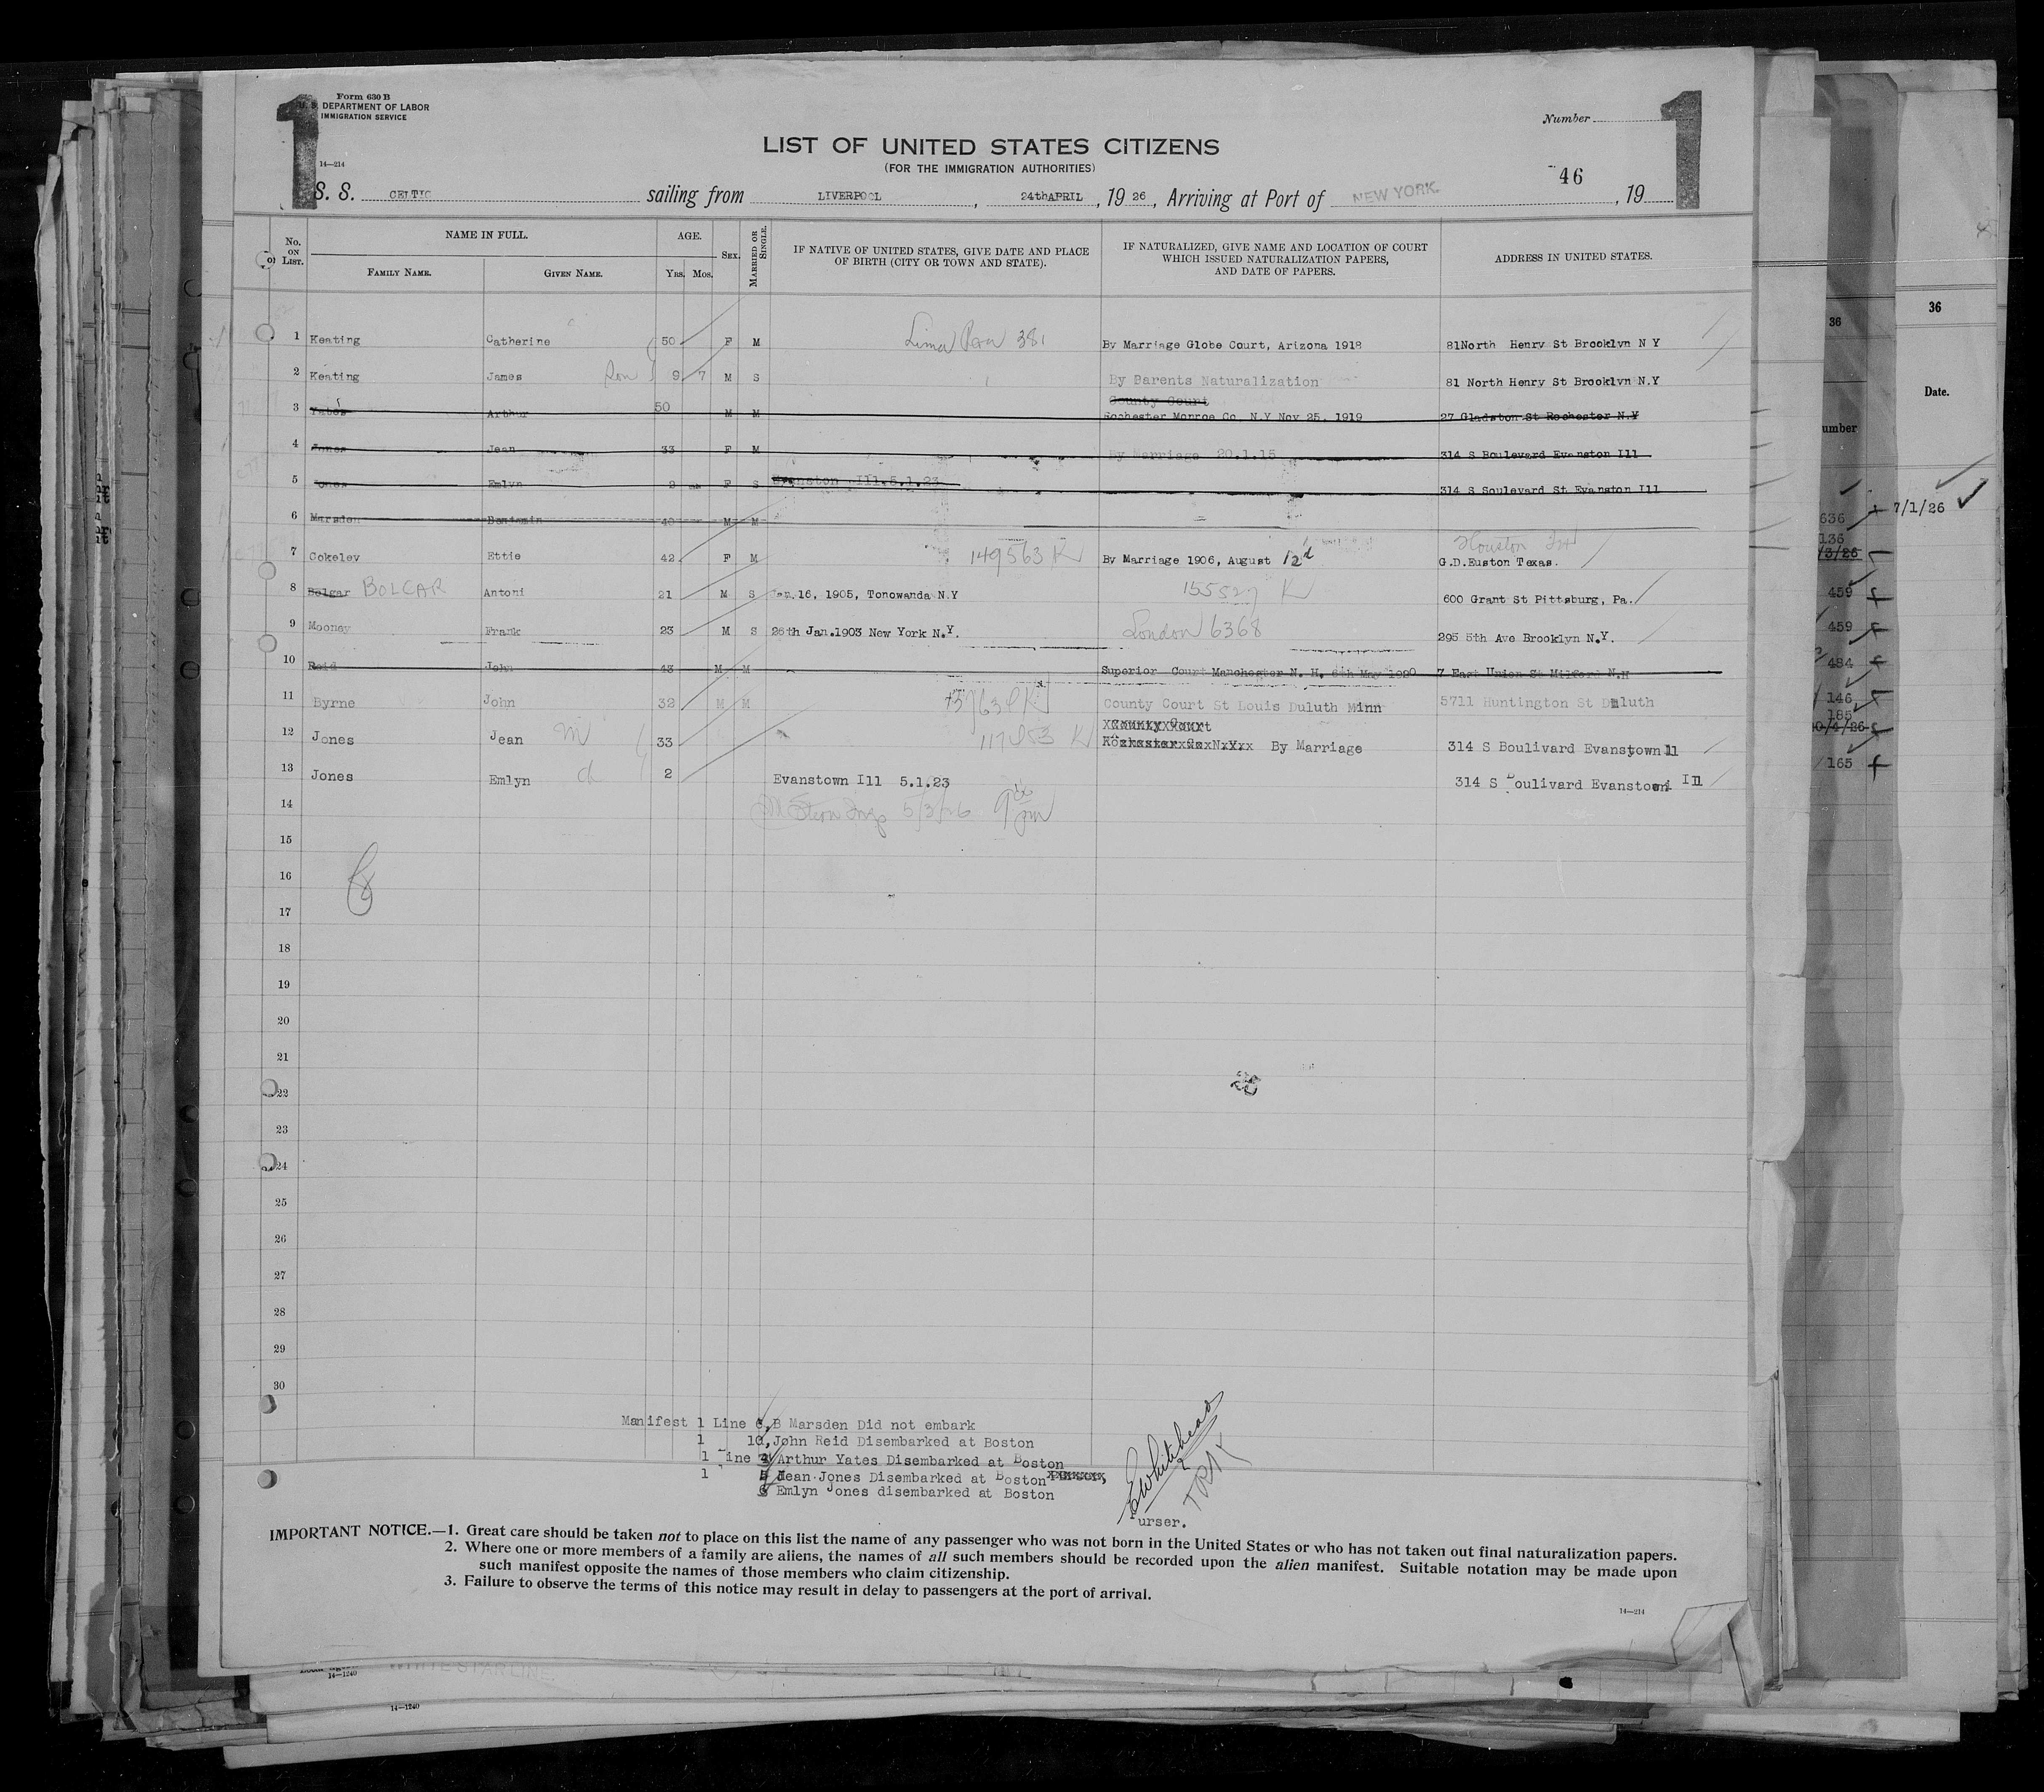 1
1
Form 630 B
U. S. DEPARTMENT OF LABOR
IMMIGRATION SERVICE
14—214
Number
LIST OF UNITED STATES CITIZENS
(FOR THE IMMIGRATION AUTHORITIES)
46
S. S. CELTIC sailing from LIVERPOOL, 24thAPRIL, 19 26, Arriving at Port of NEW YORK, 19
No. ON LIST. NAME IN FULL. AGE. SEX. MARRIED OR SINGLE. IF NATIVE OF UNITED STATES, GIVE DATE AND PLACE OF BIRTH (CITY OR TOWN AND STATE). IF NATURALIZED, GIVE NAME AND LOCATION OF COURT WHICH ISSUED NATURALIZATION PAPERS, AND DATE OF PAPERS. ADDRESS IN UNITED STATES.
FAMILY NAME. GIVEN NAME. YRS. MOS.
1 Keating Catherine 50 F M Lima Peru 381 By Marriage Globe Court, Arizona 1918 81North Henry St Brooklyn N Y
2 Keating James Son 9 7 M S By Parents Naturalization 81 North Henry St Brooklyn N.Y
County Court
3 Yates Arthur 50 M M Rochester Monroe Co N.Y Nov 25, 1919 27 Gladston St Rochester N.Y
4 Jones Jean 33 F M By Marriage 20.1.15 314 S Boulevard Evanston Ill
5 Jones Emlyn F S Evanston Ill.5.1.23 314 S Soulevard St Evanston Ill
6 Marsden Benjamin 40 M M
Houston
7 Cokeley Ettie 42 F M 149563 K By Marriage 1906, August 12d G.D.Euston Texas.
8 Bolgar BOLCAR Antoni 21 M S Jan. 16, 1905, Tonowanda N.Y 155527 K 600 Grant St Pittsburg, Pa.
9 Mooney Frank 23 M S 26th Jan.1903 New York N.Y. London 6368 295 5th Ave Brooklyn N.Y.
10 Reid John 43 M M Superior Court Manchester N. H. 6th May 1920 7 East Union St Milford N.H
11 Byrne John 32 M M County Court St Louis Duluth Minn 5711 Huntington St Duluth
County Court
12 Jones Jean M 33 By Marriage 314 S Boulivard Evanstown Ill
13 Jones Emlyn d 2 Evanstown Ill 5.1.23 314 S Boulivard Evanstown Ill
14 Stern Insp 5/3/26 9 pm
15
16
17
18
19
20
21
22
23
24
25
26
27
28
29
30
8
Manifest 1 Line 6, B Marsden Did not embark
1 10, John Reid Disembarked at Boston
1 Line 3 Arthur Yates Disembarked at Boston
1 Jean Jones Disembarked at Boston
Emlyn Jones disembarked at Boston
E Whitehead
Purser.
IMPORTANT NOTICE.—1. Great care should be taken not to place on this list the name of any passenger who was not born in the United States or who has not taken out final naturalization papers.
2. Where one or more members of a family are aliens, the names of all such members should be recorded upon the alien manifest. Suitable notation may be made upon
such manifest opposite the names of those members who claim citizenship.
3. Failure to observe the terms of this notice may result in delay to passengers at the port of arrival.
14—214
WHITE STAR LINE.
14—1240
14—1240
36
36
Date.
umber
7/1/26
636
136
/3/26
459
459
484
146
185
0/4/26
165